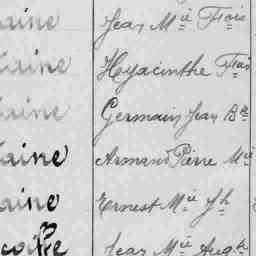 aine Jean Mie Frois
aine Hyacinthe Frois
aine Germain Jean Bte
aine Armand Pierre Mie
aine Ernest Mie Jh
Jean Mie Augte